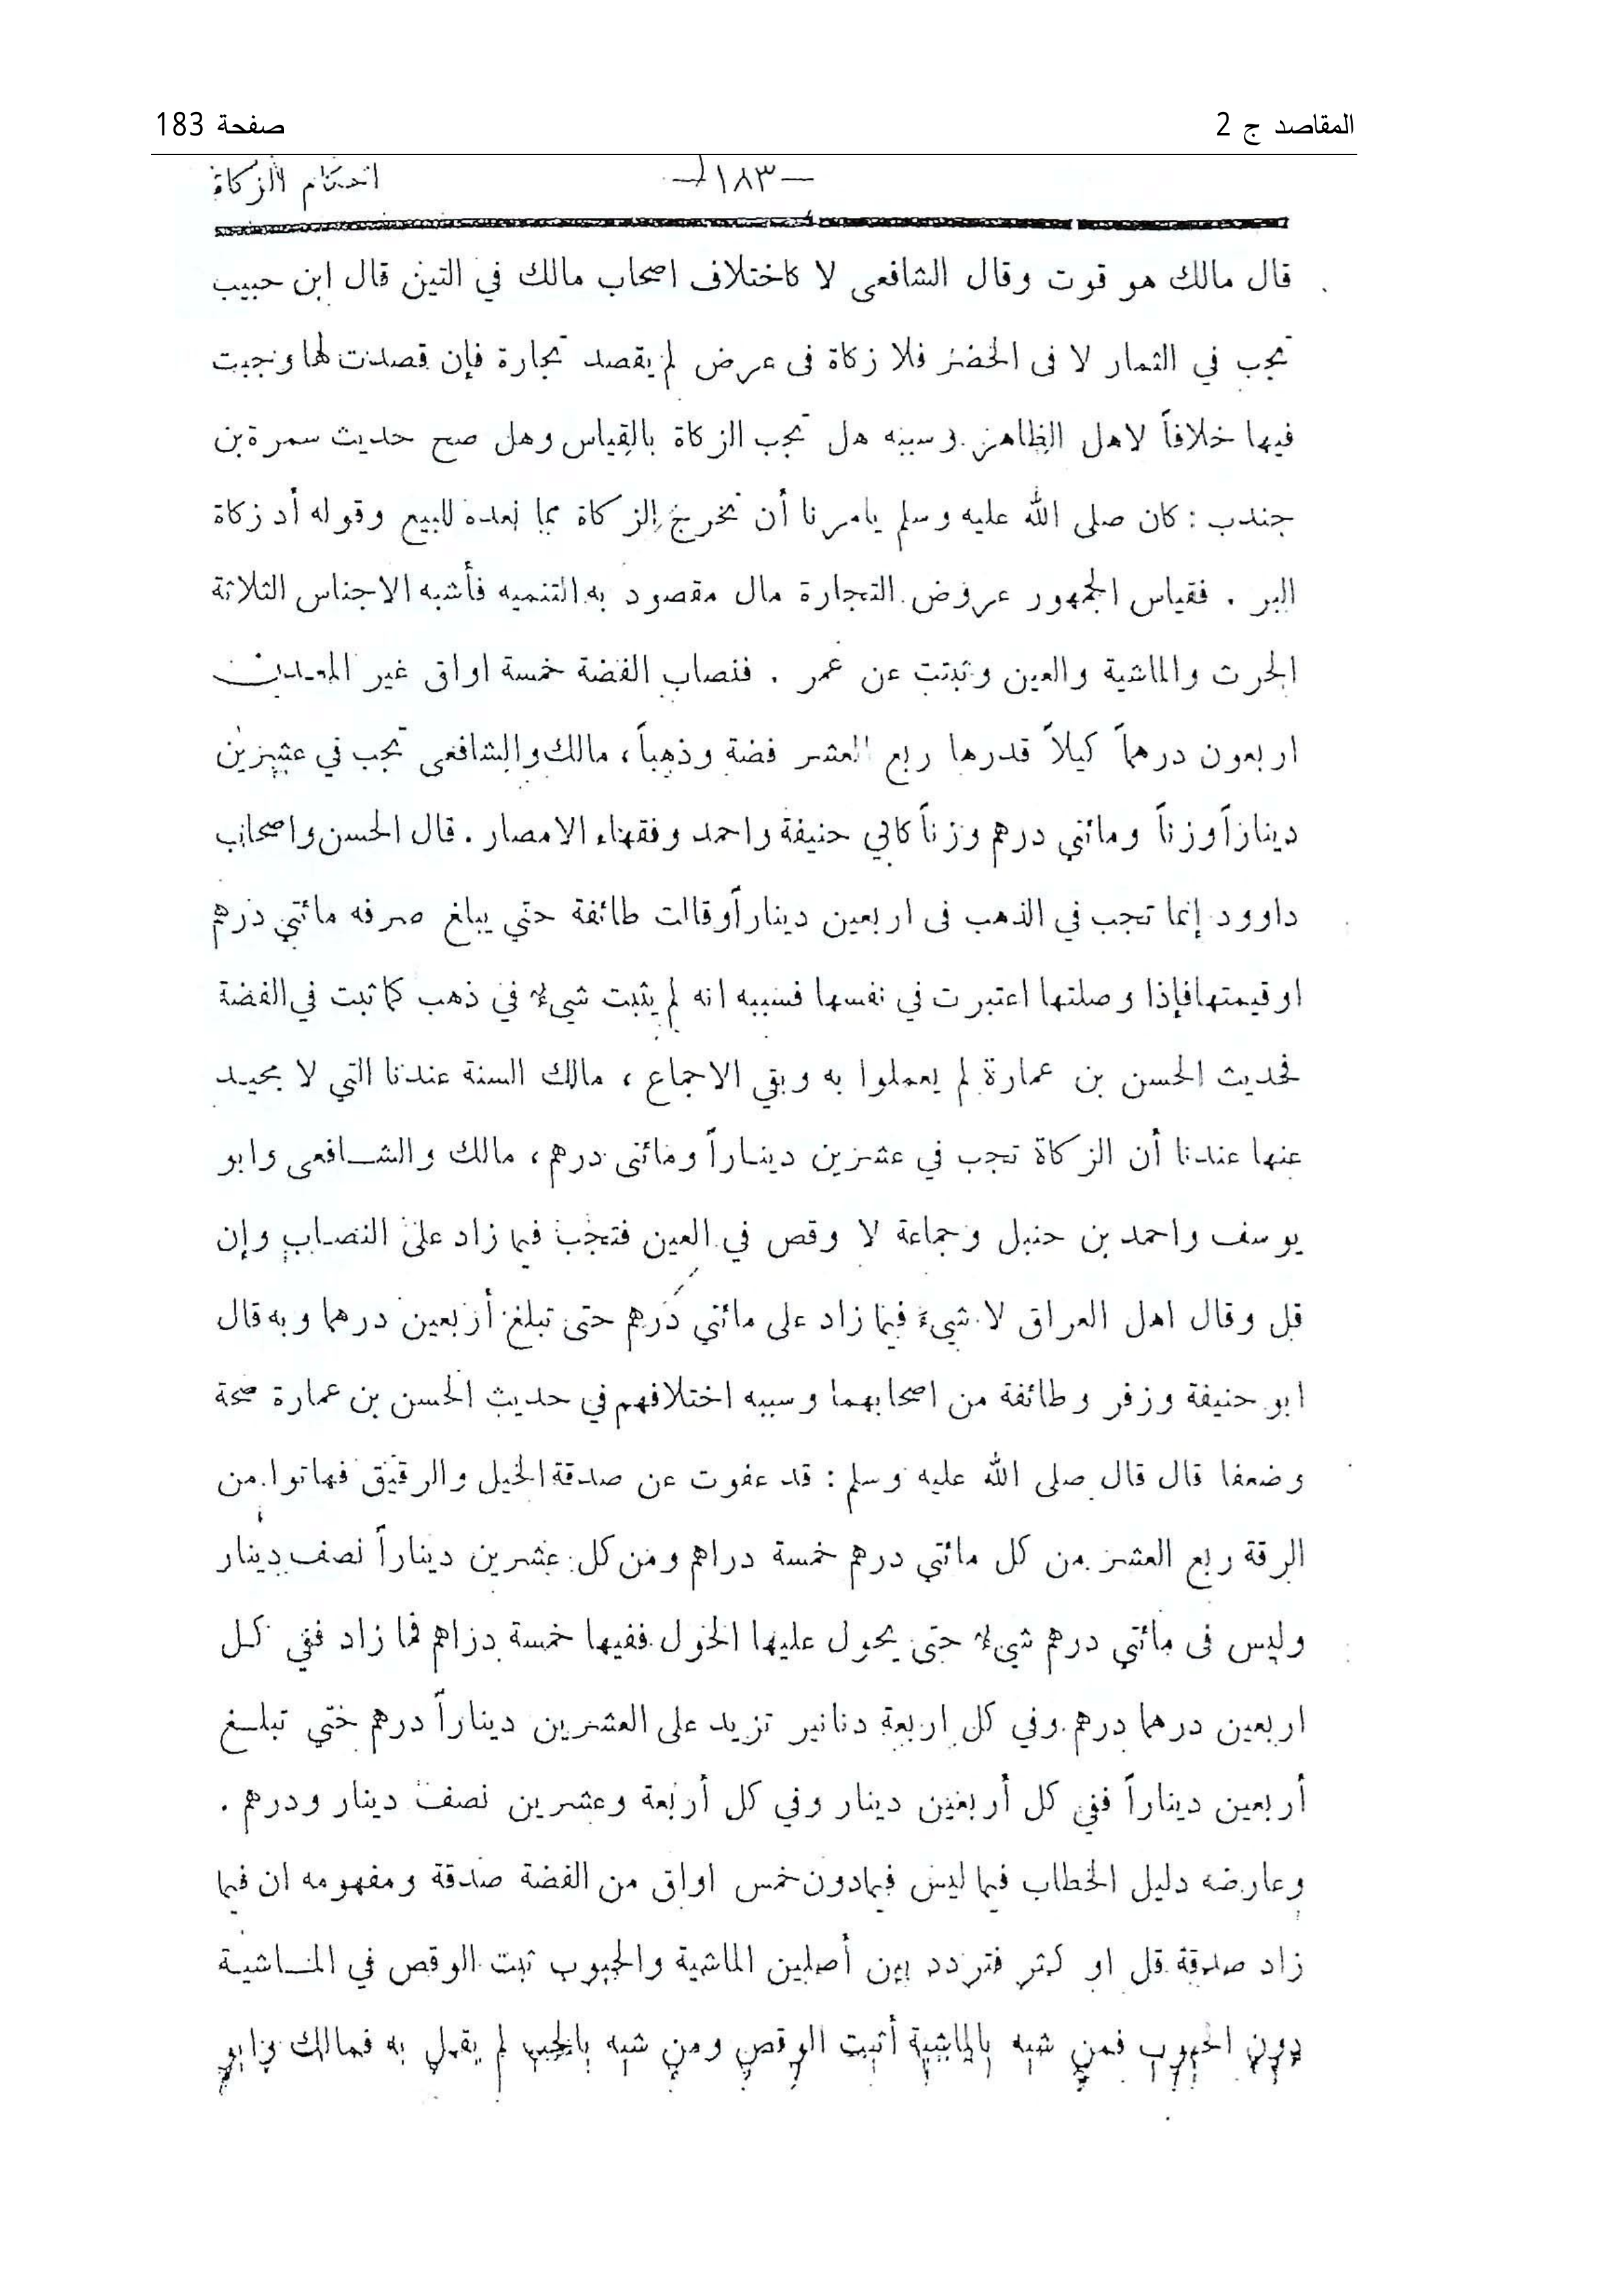 المقاصد ج 2
صفحة 183
احكام الزكاة
—١٨٣—
قال مالك هو قوت وقال الشافعى لا كاختلاف اصحاب مالك في التين قال ابن حبيب
تجب في الثمار لا فى الخضر فلا زكاة فى عرض لم يقصد تجارة فإن قصدت لها وجبت
فيها خلافاً لاهل الظاهر وسببه هل تجب الزكاة بالقياس وهل صح حديث سمرة بن
جندب : كان صلى الله عليه وسلم يامرنا أن نخرج الزكاة مما نعده للبيع وقوله أد زكاة
البر . فقياس الجمهور عروض التجارة مال مقصود به التنميه فأشبه الاجناس الثلاثة
الحرث والماشية والعين وثبتت عن عمر . فنصاب الفضة خمسة اواق غير المعدن
اربعون درهماً كيلاً قدرها ربع العشر فضة وذهباً ، مالك والشافعى تجب في عشرين
ديناراً وزناً ومائتي درهم وزناً كابي حنيفة واحمد وفقهاء الامصار . قال الحسن واصحاب
داوود إنما تجب في الذهب فى اربعين ديناراً وقالت طائفة حتي يبلغ صرفه مائتي درهم
او قيمتها فإذا وصلتها اعتبرت في نفسها فسببه انه لم يثبت شيء في ذهب كما ثبت في الفضة
فحديث الحسن بن عمارة لم يعملوا به وبقي الاجماع ، مالك السنة عندنا التي لا محيد
عنها عندنا أن الزكاة تجب في عشرين ديناراً ومائتى درهم ، مالك والشافعى وابو
يوسف واحمد بن حنبل وجماعة لا وقص في العين فتجب فيما زاد على النصاب وإن
قل وقال اهل العراق لا شيء فيما زاد على مائتي درهم حتى تبلغ أربعين درهما وبه قال
ابو حنيفة وزفر وطائفة من اصحابهما وسببه اختلافهم في حديث الحسن بن عمارة صحة
وضعفا قال قال صلى الله عليه وسلم : قد عفوت عن صدقة الخيل والرقيق فهاتوا من
الرقة ربع العشر من كل مائتي درهم خمسة دراهم ومن كل عشرين ديناراً نصف دينار
وليس فى مائتي درهم شيء حتى يحول عليها الحول ففيها خمسة دراهم فما زاد ففي كل
اربعين درهما درهم وفي كل اربعة دنانير تزيد على العشرين ديناراً درهم حتي تبلغ
أربعين ديناراً ففي كل أربعين دينار وفي كل أربعة وعشرين نصف دينار ودرهم .
وعارضه دليل الخطاب فيما ليس فيما دون خمس اواق من الفضة صدقة ومفهومه ان فيما
زاد صدقة قل او كثر فتردد بين أصلين الماشية والحبوب ثبت الوقص في الماشية
دون الحبوب فمن شبه بالماشية أثبت الوقص ومن شبه بالحب لم يقل به فمالك وابو